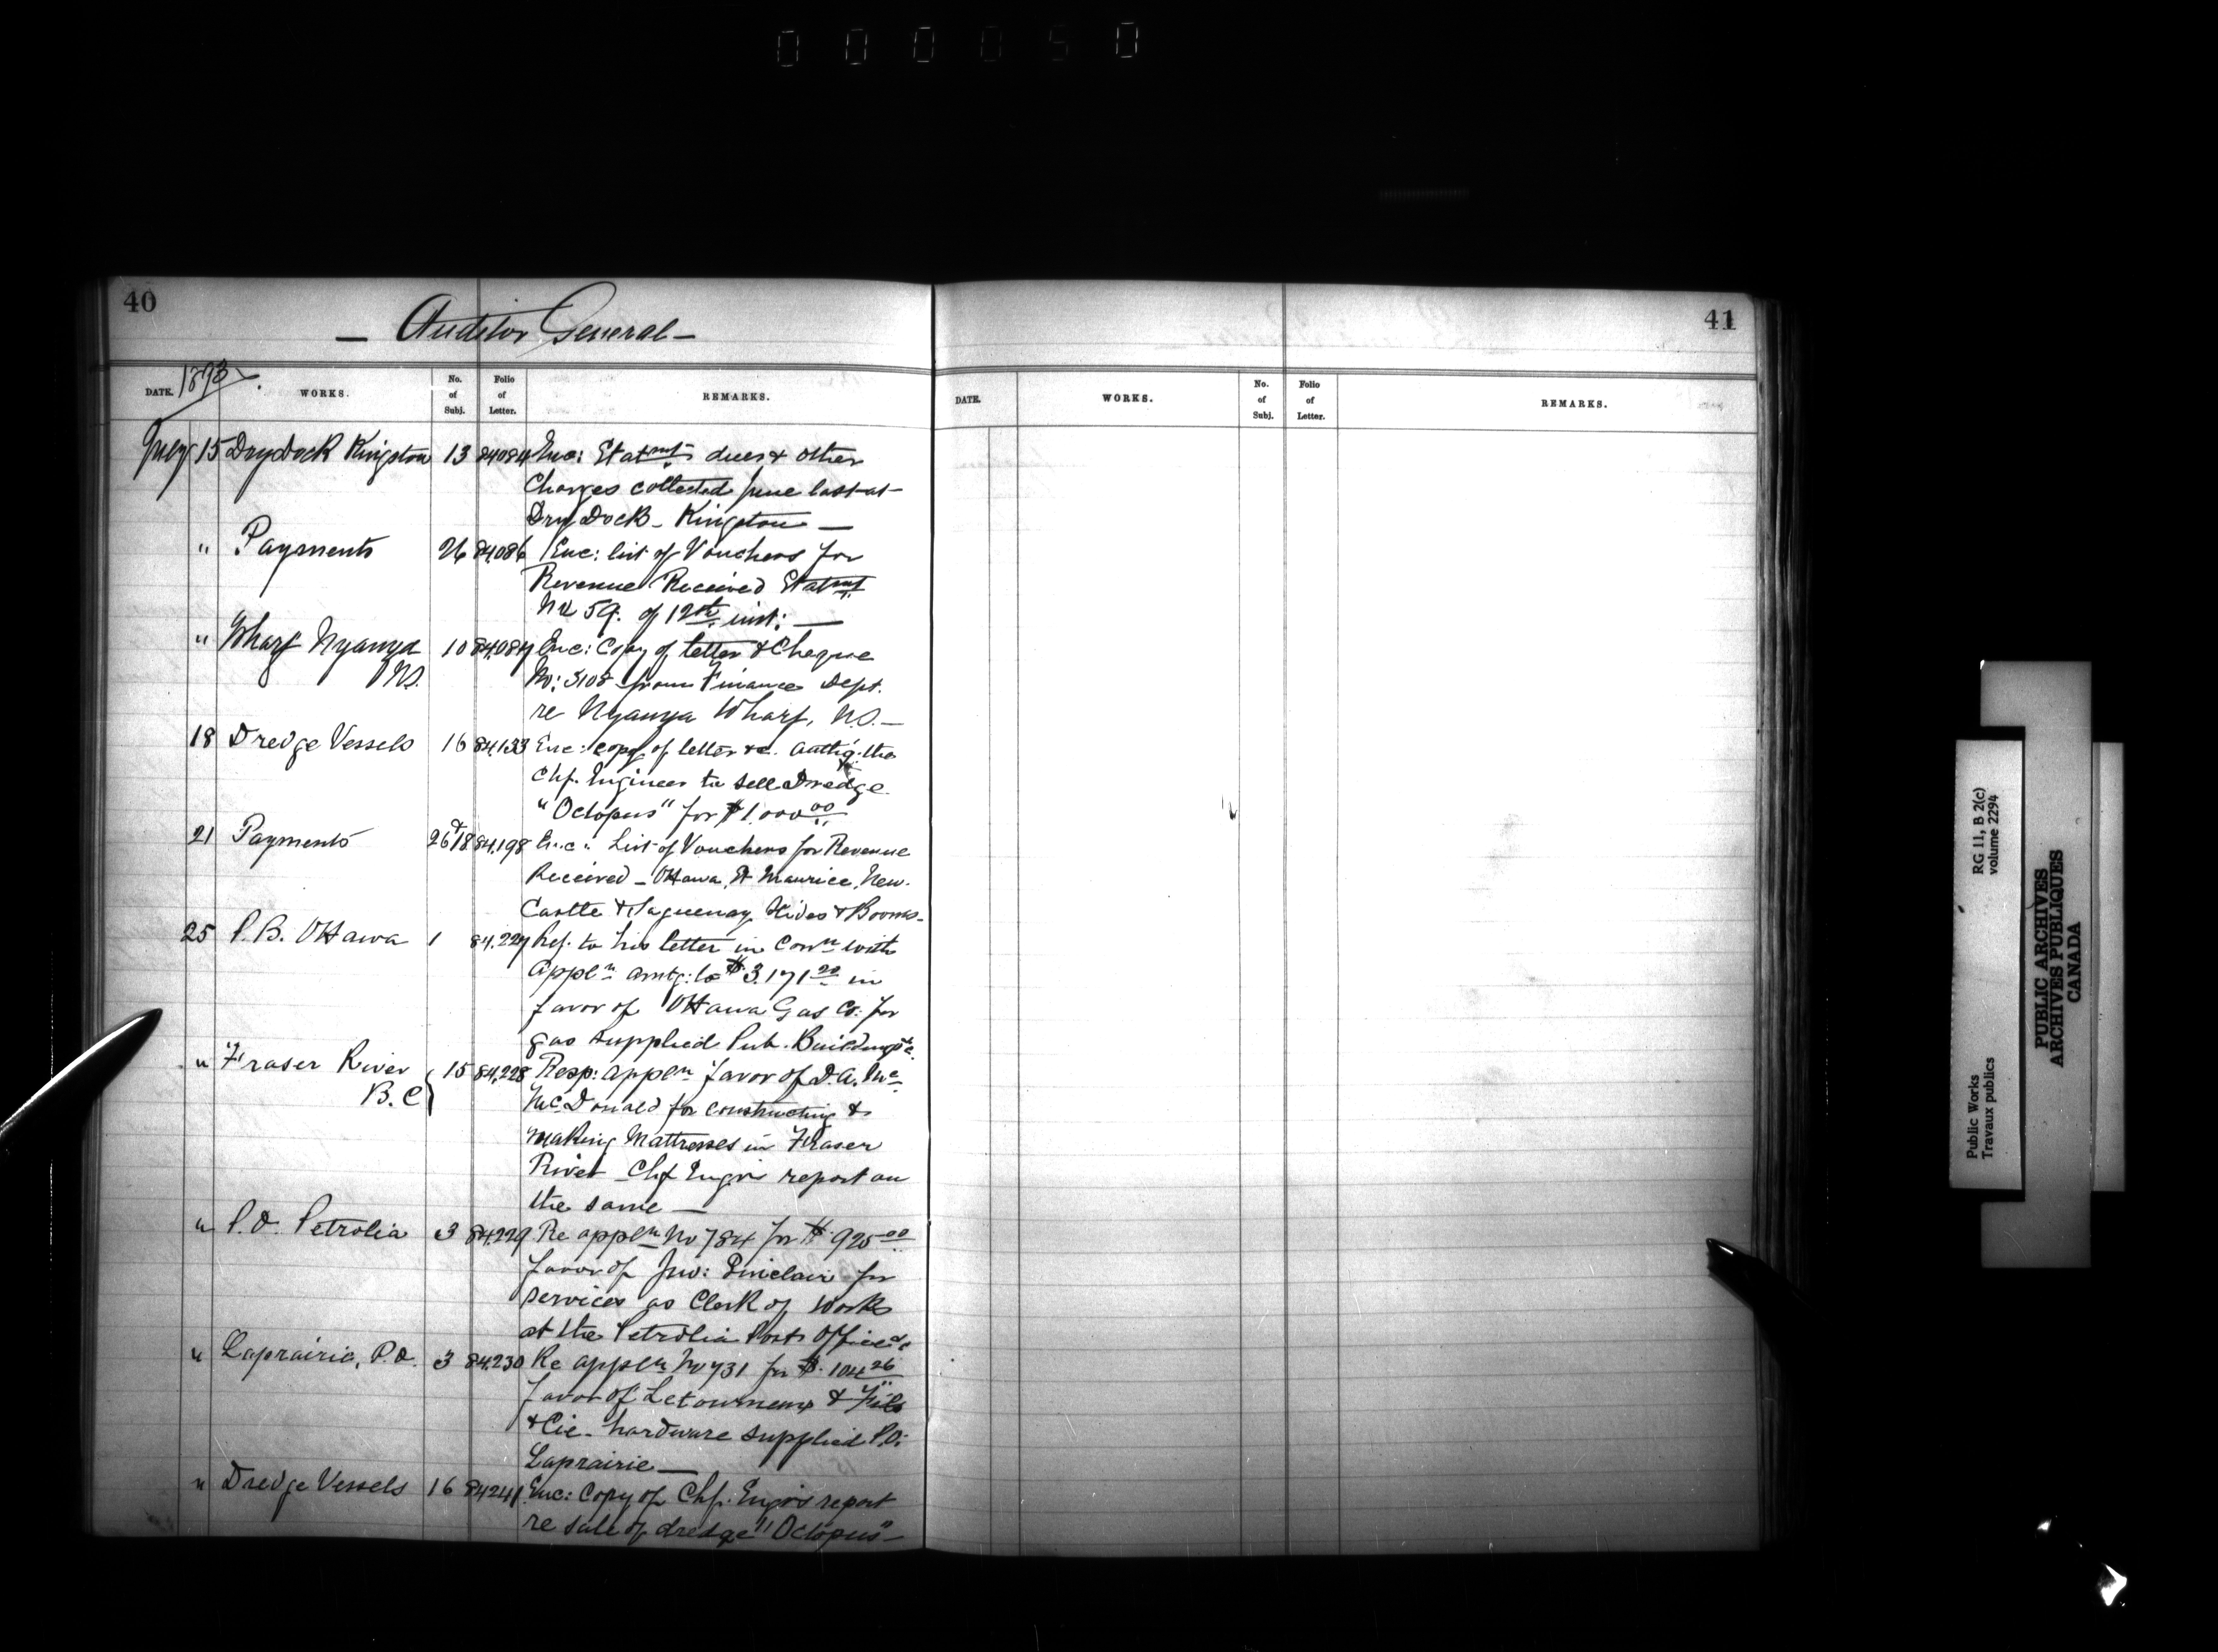 000050
40
— Auditor General —
1893
DATE. WORKS. No. of Subj. Folio of Letter. REMARKS.
July 15 Dry Dock Kingston 13 84084 Enc: Statmt dues & other
Charges collected June last at
Dry Dock - Kingston —
" Payments 26 84,086 Enc: list of Vouchers for
Revenue Received Statmt
No 59. of 12th inst: —
" Wharf Nyanza 10 84,087 Enc: Copy of letter & Cheque
N.S. No: 3105 from Finance Dept.
re Nyanza Wharf, N.S. —
18 Dredge Vessels 16 84,133 Enc: copy of letter &c. authg: the
Chf. Engineer to sell Dredge
"Octopus" for $1.000 00
21 Payments 26 & 18 84,198 Enc: List of Vouchers for Revenue
Received - Ottawa, St Maurice, New-
Castle & Saguenay Slides & Booms -
25 P.B. Ottawa 1 84,227 Ref. to his letter in Conn with
Appln amtg: to $3.171 20 in
favor of Ottawa Gas Co: for
gas supplied Pub. Buildings &c
" Fraser River 15 84,228 Resp: appln favor of D.A. Mc
B.C McDonald for constructing &
making Mattresses in Fraser
River - Chf Engrs report on
the same —
" P.O. Petrolia 3 84,229 Re appln No 784 for $925 00
favor of Jno: Sinclair for
services as Clerk of Works
at the Petrolia Post Office &c
" Laprairie, P.O. 3 84,230 Re appln No 731 for $104 26
favor of Letourneux & Fils
& Cie - hardware supplied P.O.
Laprairie —
" Dredge Vessels 16 84241 Enc: Copy of Chf. Engrs report
re sale of dredge "Octopus" -
41
DATE. WORKS. No. of Subj. Folio of Letter. REMARKS.
RG 11, B 2(c)
volume 2294
Public Works
Travaux publics
PUBLIC ARCHIVES
ARCHIVES PUBLIQUES
CANADA